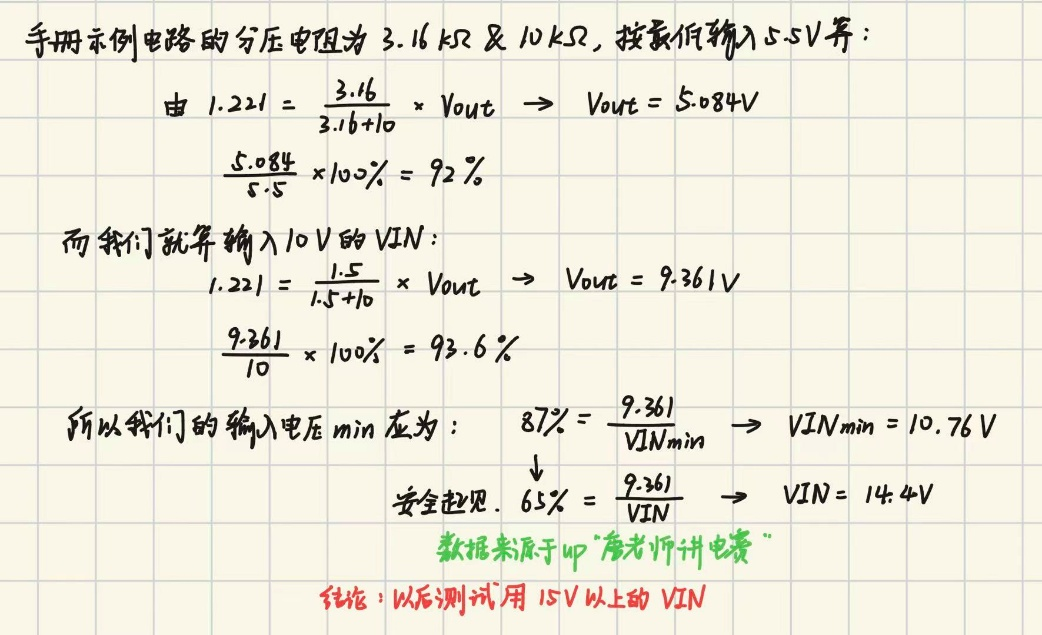 手册示例电路的分压电阻为 3.16 kΩ & 10 kΩ, 按最低输入 5.5V 算:
由 1.221 = 3.16/(3.16+10) × Vout → Vout = 5.084V
5.084/5.5 ×100% = 92%
而我们就算输入 10V 的 VIN:
1.221 = 1.5/(1.5+10) × Vout → Vout = 9.361V
9.361/10 × 100% = 93.6%
所以我们的输入电压 min 应为: 87% = 9.361/VINmin → VINmin = 10.76V
↓
安全起见. 65% = 9.361/VIN → VIN = 14.4V
数据来源于up“唐老师讲电赛”
结论: 以后测试用 15V 以上的 VIN